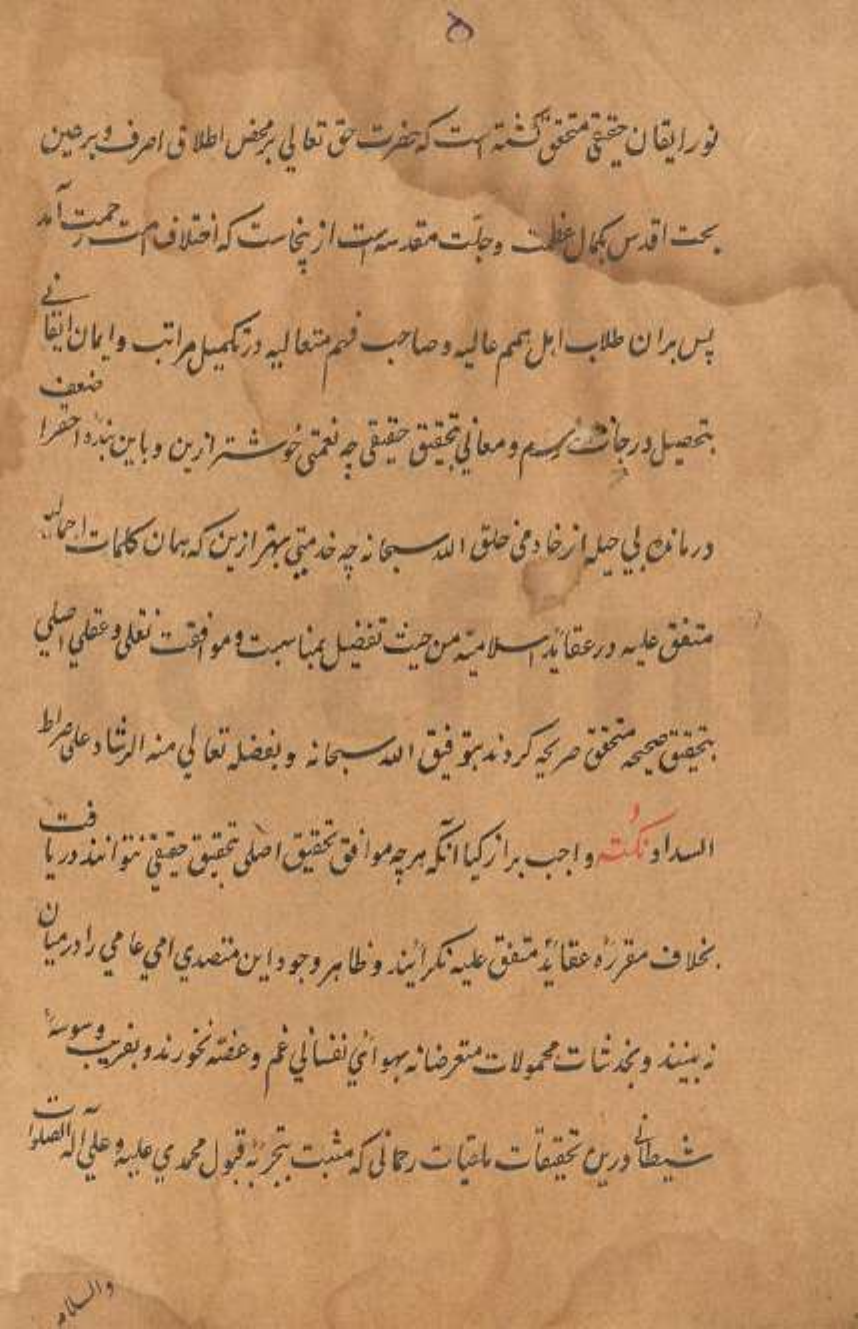 ۵
نور ایقان حقیقی متحقق گشته است که حضرت حق تعالی بر محض اطلاق اصرف و بر عین
بحت اقدس بکمال عظمت و جلّت متقدسه است ازینجاست که اختلاف امت رحمت آمد
پس بران طلاب اهل همم عالیه و صاحب فهم متعالیه در تکمیل مراتب و ایمان ایقانی
بتحصیل درجات و معانی تحقیق حقیقی چه نعمتی خوشتر ازین و باین بنده احقر اضعف
درمانده بی حیله از خادمی خلق الله سبحانه چه خدمتی بهتر ازین که همان کلمات اجمالیه
متفق علیه در عقاید اسلامیّه من حیث تفضیل بمناسبت و موافقت نقلی و عقلی اصلی
بتحقیق صحیحه متحقق صریحه کردند بتوفیق الله سبحانه و بفضله تعالی منه الرشاد علی صراط
السداد و نکته واجب بر ازکیا آنکه هرچه موافق تحقیق اصلی تحقیق حقیقی نتوانند دریافت
بخلاف مقرره عقاید متفق علیه نکرایند و ظاهر وجود این متصدی امی عامی را درمیان
نه بینند و بخدشات محمولات متعرضانه بهوائی نفسانی غم و غصّه نخورند و بفریب وسوسهٔ
شیطانی درین تحقیقات ملقیات رحمانی که مثبت بتجربهٔ قبول محمدی علیه و علی آله الصلوات
والسلام